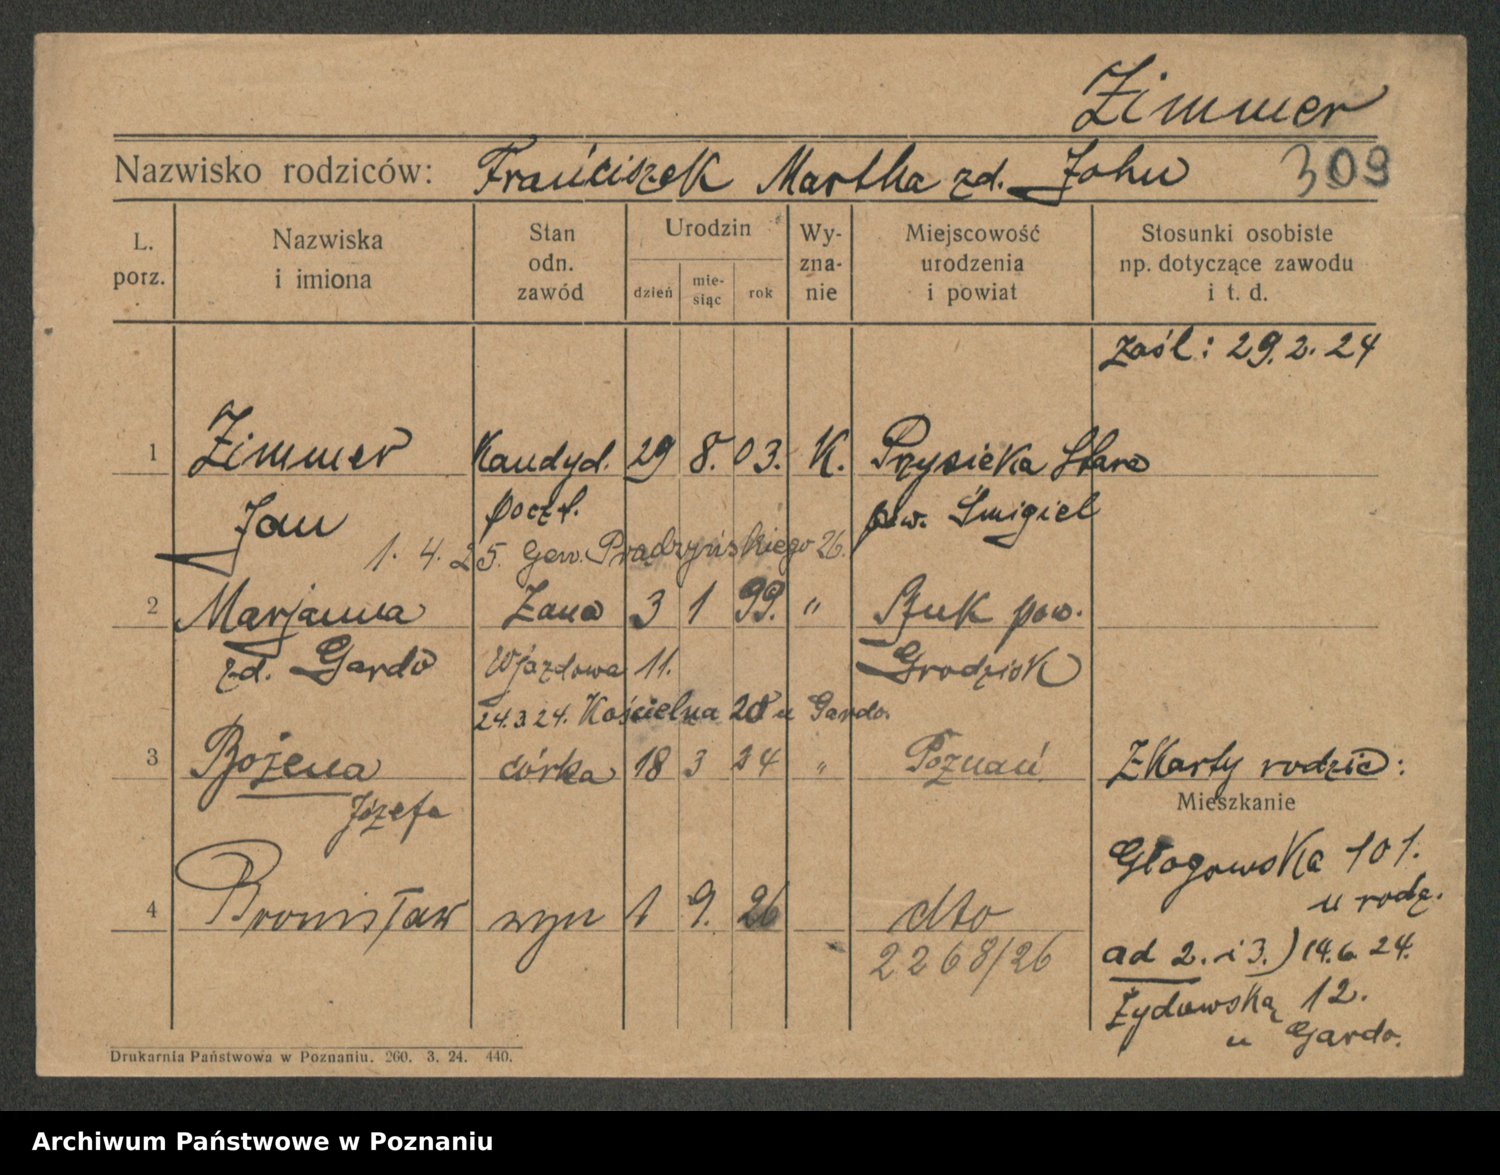 Zimmer
Nazwisko rodziców: Franciszek Martha zd. John 309
L. porz.
Nazwiska i imiona
Stan odn. zawód
Urodzin
dzień
mie-siąc
rok
Wy-zna-nie
Miejscowość urodzenia i powiat
Stosunki osobiste np. dotyczące zawodu i t. d.
zaśl: 29. 2. 24
1 Zimmer Kandyd. 29 8. 03. K. Przysieka Stara
Jan poczt. pow. Śmigiel
1. 4. 25. Gen. Prądzyńskiego 26.
2 Marjanna Żona 3 1 99. " Buk pow.
zd. Gardo Wjazdowa 11. Grodzisk
24.3.24. Kościelna 20 u Gardo.
3 Bożena córka 18 3 24 " Poznań Z Karty rodzic:
Józefa
Mieszkanie
Głogowska 101.
u rodz.
4 Bronisław syn 1 9. 26 dto
2268/26
ad 2. i 3.) 14.6 24.
Żydowską 12.
u Gardo.
Drukarnia Państwowa w Poznaniu. 260. 3. 24. 440.
Archiwum Państwowe w Poznaniu